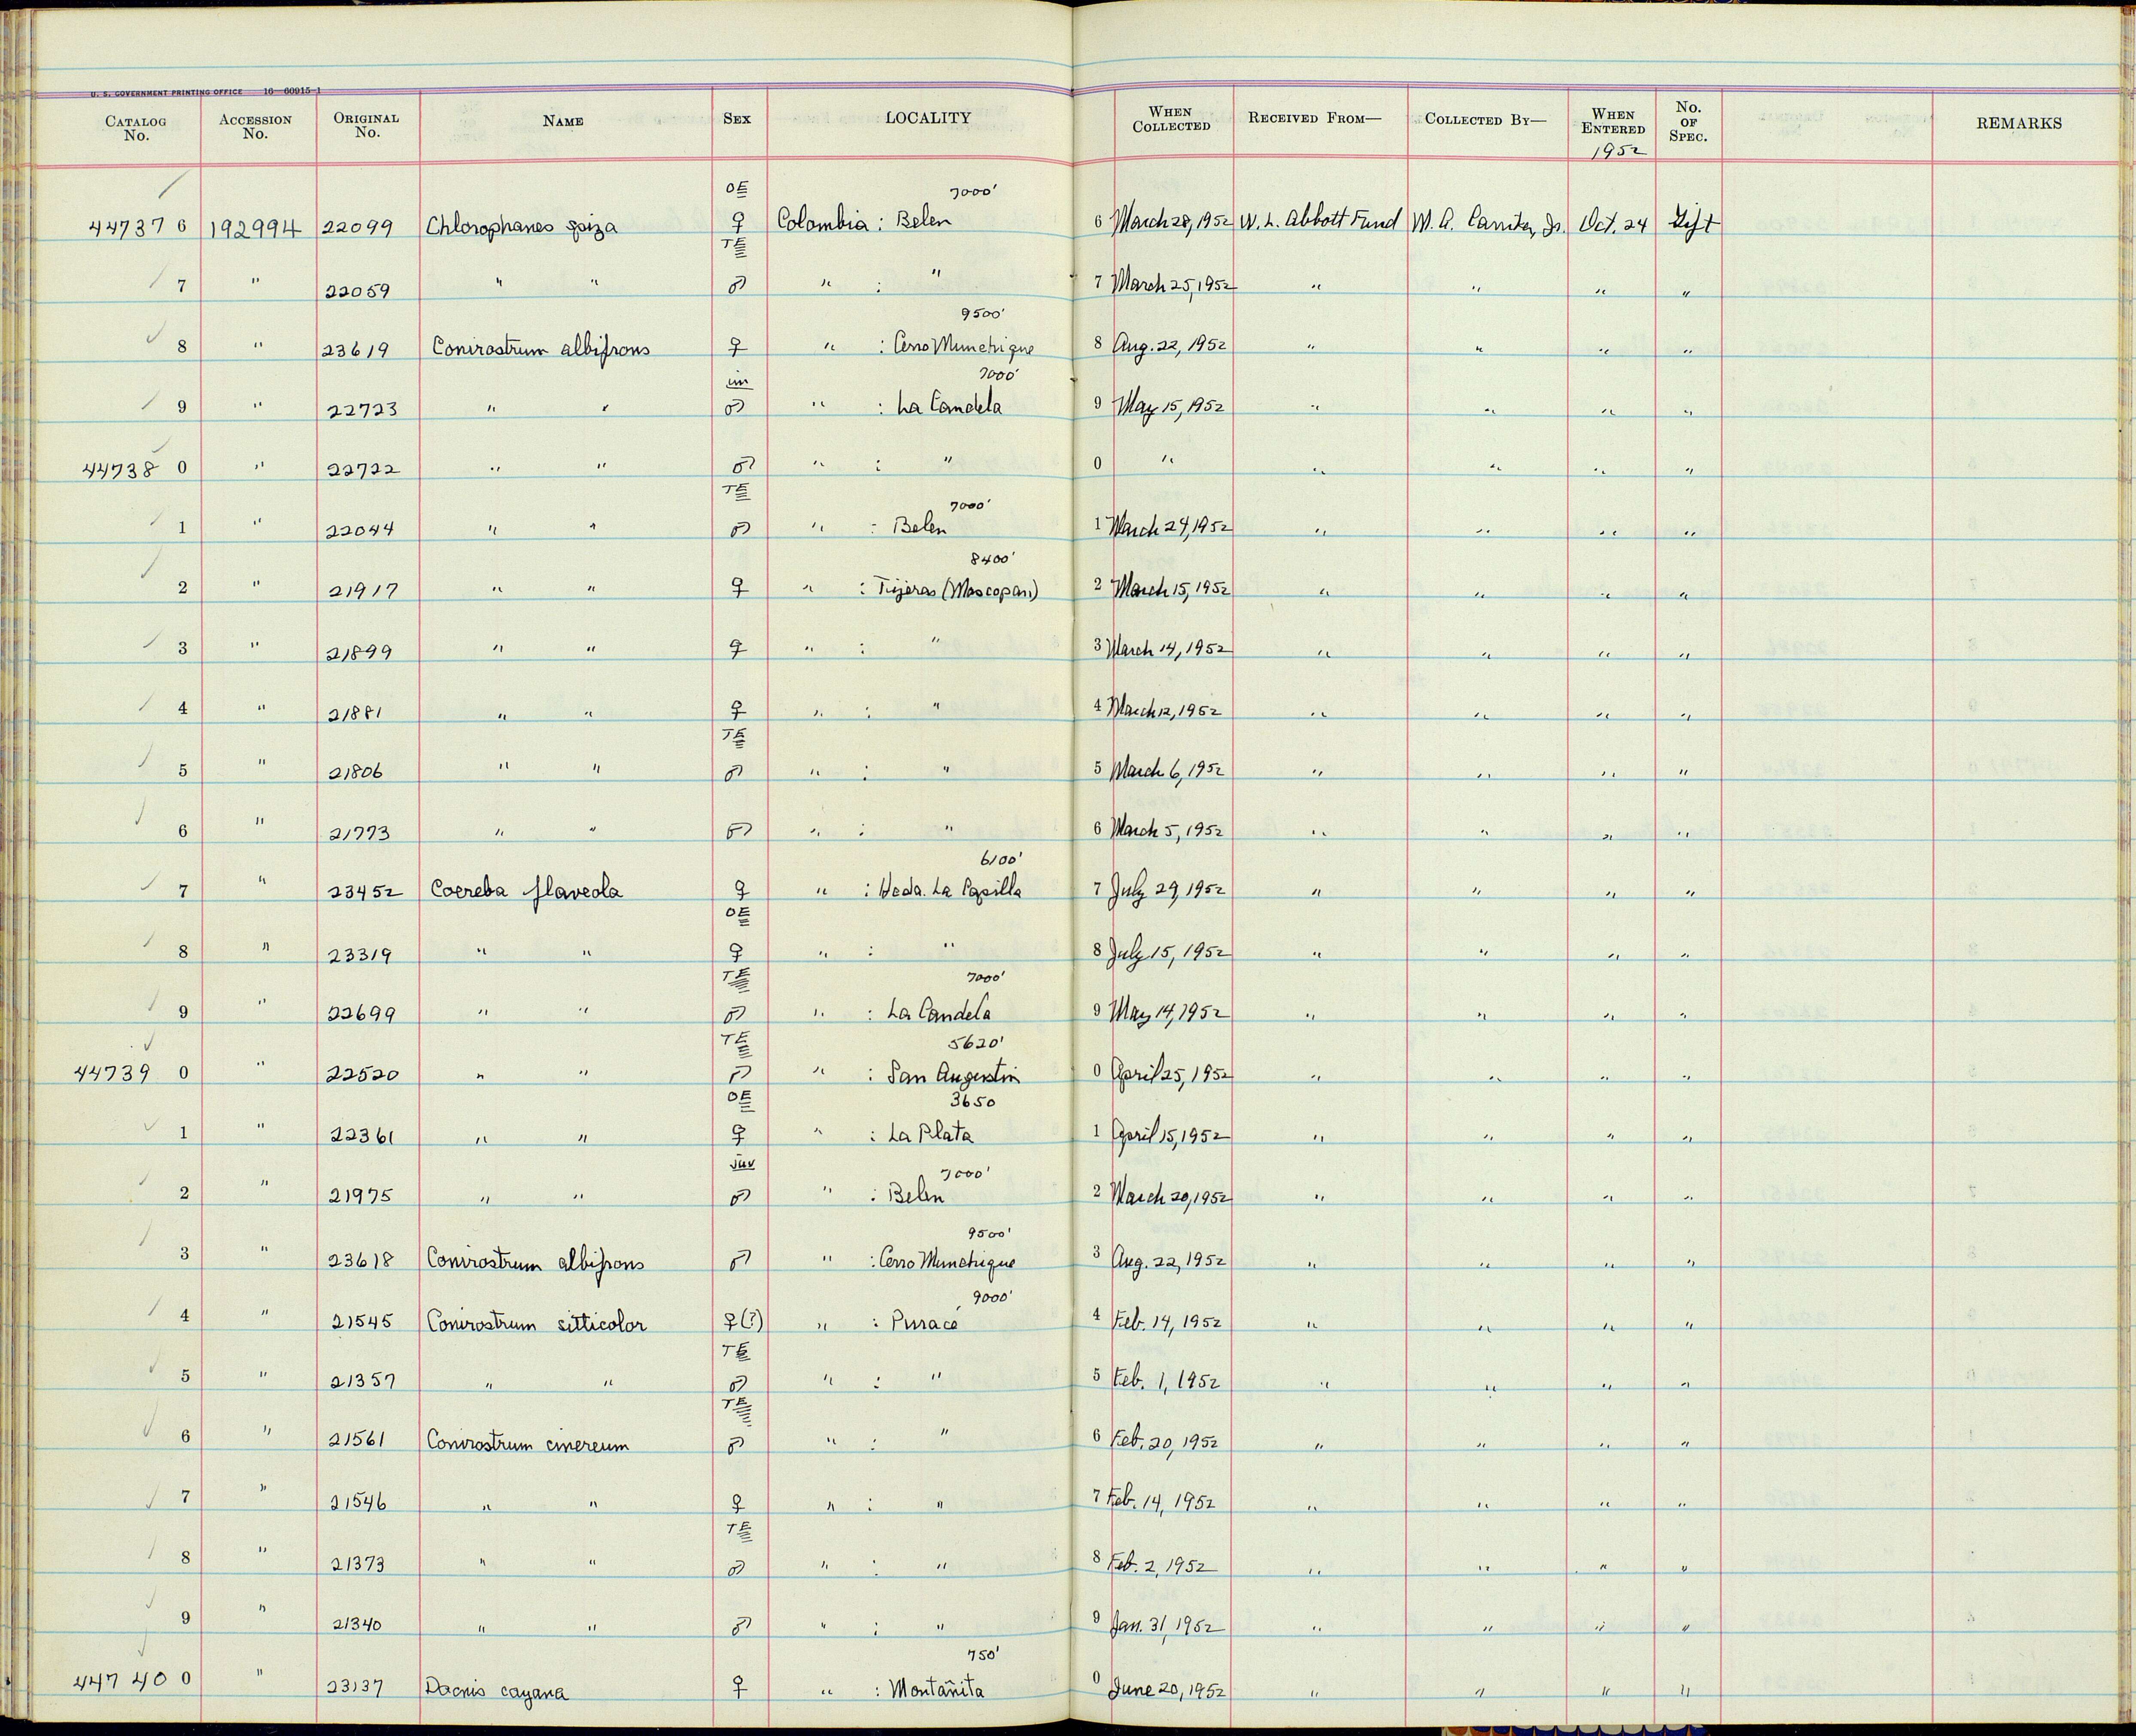 U. S. GOVERNMENT PRINTING OFFICE 16—60915-1
CATALOG No. ACCESSION No. ORIGINAL No. NAME SEX LOCALITY WHEN COLLECTED RECEIVED FROM— COLLECTED BY— WHEN ENTERED 1952 No. OF SPEC. REMARKS
OE 7000'
447376 192994 22099 Chlorophanes spiza ♀ Colombia : Belen 6 March 28, 1952 W. L. Abbott Fund M. A. Carriker, Jr. Oct. 24 Gift
TE
7 " 22059 " " ♂ " : " 7 March 25, 1952 " " " "
9500'
8 " 23619 Conirostrum albifrons ♀ " : Cerro Munchique 8 Aug. 22, 1952 " " " "
im 7000'
9 " 22723 " " ♂ " : La Candela 9 May 15, 1952 " " " "
447380 " 22722 " " ♂ " : " 0 " " " " "
TE 7000'
1 " 22044 " " ♂ " : Belen 1 March 24, 1952 " " " "
8400'
2 " 21917 " " ♀ " : Tijeras (Moscopan) 2 March 15, 1952 " " " "
3 " 21899 " " ♀ " : " 3 March 14, 1952 " " " "
4 " 21881 " " ♀ " : " 4 March 12, 1952 " " " "
TE
5 " 21806 " " ♂ " : " 5 March 6, 1952 " " " "
6 " 21773 " " ♂ " : " 6 March 5, 1952 " " " "
6100'
7 " 23452 Coereba flaveola ♀ " : Hcda. La Capilla 7 July 29, 1952 " " " "
OE
8 " 23319 " " ♀ " : " 8 July 15, 1952 " " " "
TE 7000'
9 " 22699 " " ♂ " : La Candela 9 May 14, 1952 " " " "
TE 5620'
447390 " 22520 " " ♂ " : San Augustin 0 April 25, 1952 " " " "
OE 3650
1 " 22361 " " ♀ " : La Plata 1 April 15, 1952 " " " "
juv 7000'
2 " 21975 " " ♂ " : Belen 2 March 20, 1952 " " " "
9500'
3 " 23618 Conirostrum albifrons ♂ " : Cerro Munchique 3 Aug. 22, 1952 " " " "
9000'
4 " 21545 Conirostrum sitticolor ♀(?) " : Puracé 4 Feb. 14, 1952 " " " "
TE
5 " 21357 " " ♂ " : " 5 Feb. 1, 1952 " " " "
TE
6 " 21561 Conirostrum cinereum ♂ " : " 6 Feb. 20, 1952 " " " "
7 " 21546 " " ♀ " : " 7 Feb. 14, 1952 " " " "
TE
8 " 21373 " " ♂ " : " 8 Feb. 2, 1952 " " " "
9 " 21340 " " ♂ " : " 9 Jan. 31, 1952 " " " "
750'
447400 " 23137 Dacnis cayana ♀ " : Montañita 0 June 20, 1952 " " " "